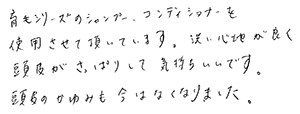 育毛シリーズのシャンプー、コンディショナーを
使用させて頂いています。洗い心地が良く
頭皮がさっぱりして気持ちいいです。
頭皮のかゆみも今はなくなりました。